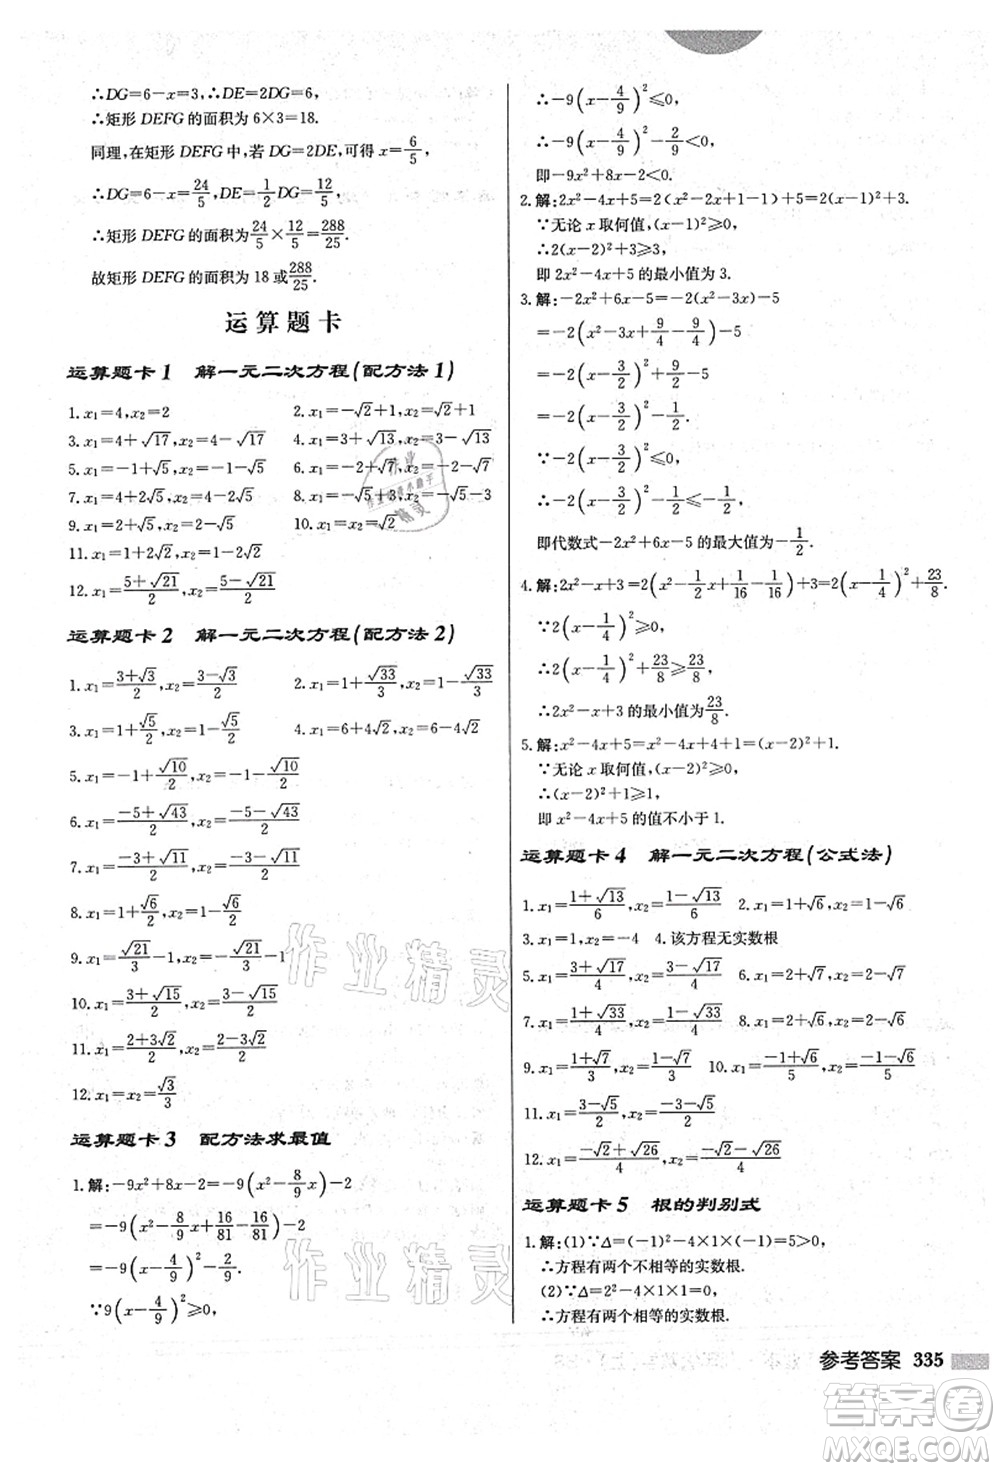 ∴DG=6-x=3,∴DE=2DG=6,
∴矩形 DEFG 的面积为 6×3=18.
同理,在矩形 DEFG 中,若 DG=2DE,可得 x=6/5,
∴DG=6-x=24/5,DE=1/2DG=12/5,
∴矩形 DEFG 的面积为24/5×12/5=288/25.
故矩形 DEFG 的面积为 18 或288/25.
运算题卡
运算题卡1 解一元二次方程(配方法1)
1.x₁=4,x₂=2 2.x₁=-√2+1,x₂=√2+1
3.x₁=4+√17,x₂=4-√17 4.x₁=3+√13,x₂=3-√13
5.x₁=-1+√5,x₂=-1-√5 6.x₁=1+√5,x₂=1-√5
7.x₁=4+√5,x₂=4-√5 8.x₁=√5-3,x₂=-√5-3
9.x₁=2+√5,x₂=2-√5 10.x₁=x₂=√2
11.x₁=1+2√5,x₂=1-2√5
12.x₁=(5+√21)/2,x₂=(5-√21)/2
运算题卡2 解一元二次方程(配方法2)
1.x₁=(3+√3)/2,x₂=(3-√3)/2 2.x₁=1+√33/3,x₂=1-√33/3
3.x₁=1+√5/2,x₂=1-√5/2 4.x₁=6+4√2,x₂=6-4√2
5.x₁=-1+√10/2,x₂=-1-√10/2
6.x₁=(-5+√43)/2,x₂=(-5-√43)/2
7.x₁=(-3+√11)/2,x₂=(-3-√11)/2
8.x₁=1+√5/2,x₂=1-√5/2
9.x₁=√21/3-1,x₂=-√21/3-1
10.x₁=(3+√15)/2,x₂=(3-√15)/2
11.x₁=(2+3√2)/2,x₂=(2-3√2)/2
12.x₁=x₂=√3/3
运算题卡3 配方法求最值
1.解:-9x²+8x-2=-9(x²-8/9x)-2
=-9(x²-8/9x+16/81-16/81)-2
=-9(x-4/9)²-2/9.
∵9(x-4/9)²≥0,
∴-9(x-4/9)²≤0,
∴-9(x-4/9)²-2/9<0,
即-9x²+8x-2<0.
2.解:2x²-4x+5=2(x²-2x+1-1)+5=2(x-1)²+3.
∵无论 x 取何值,(x-1)²≥0,
∴2(x-1)²+3≥3,
即 2x²-4x+5 的最小值为 3.
3.解:-2x²+6x-5=-2(x²-3x)-5
=-2(x²-3x+9/4-9/4)-5
=-2(x-3/2)²+9/2-5
=-2(x-3/2)²-1/2.
∵-2(x-3/2)²≤0,
∴-2(x-3/2)²-1/2≤-1/2,
即代数式-2x²+6x-5 的最大值为-1/2.
4.解:2x²-x+3=2(x²-1/2x+1/16-1/16)+3=2(x-1/4)²+23/8.
∵2(x-1/4)²≥0,
∴2(x-1/4)²+23/8≥23/8,
∴2x²-x+3 的最小值为23/8.
5.解:x²-4x+5=x²-4x+4+1=(x-2)²+1.
∵无论 x 取何值,(x-2)²≥0,
∴(x-2)²+1≥1,
即 x²-4x+5 的值不小于 1.
运算题卡4 解一元二次方程(公式法)
1.x₁=(1+√13)/6,x₂=(1-√13)/6 2.x₁=1+√6,x₂=1-√6
3.x₁=1,x₂=-4 4.该方程无实数根
5.x₁=(3+√17)/4,x₂=(3-√17)/4 6.x₁=2,x₂=-1/2
7.x₁=(1+√33)/4,x₂=(1-√33)/4 8.x₁=2,x₂=1/2
9.x₁=(1+√7)/3,x₂=(1-√7)/3 10.x₁=(-1+√6)/5,x₂=(-1-√6)/5
11.x₁=(3-√5)/2,x₂=(-3-√5)/2
12.x₁=(-√2+√26)/4,x₂=(-√2-√26)/4
运算题卡5 根的判别式
1.解:(1)∵Δ=(-1)²-4×1×(-1)=5>0,
∴方程有两个不相等的实数根.
(2)∵Δ=2²-4×1×1=0,
∴方程有两个相等的实数根.
参考答案 335
作业精灵
作业精灵
答案卷
MXQE.COM